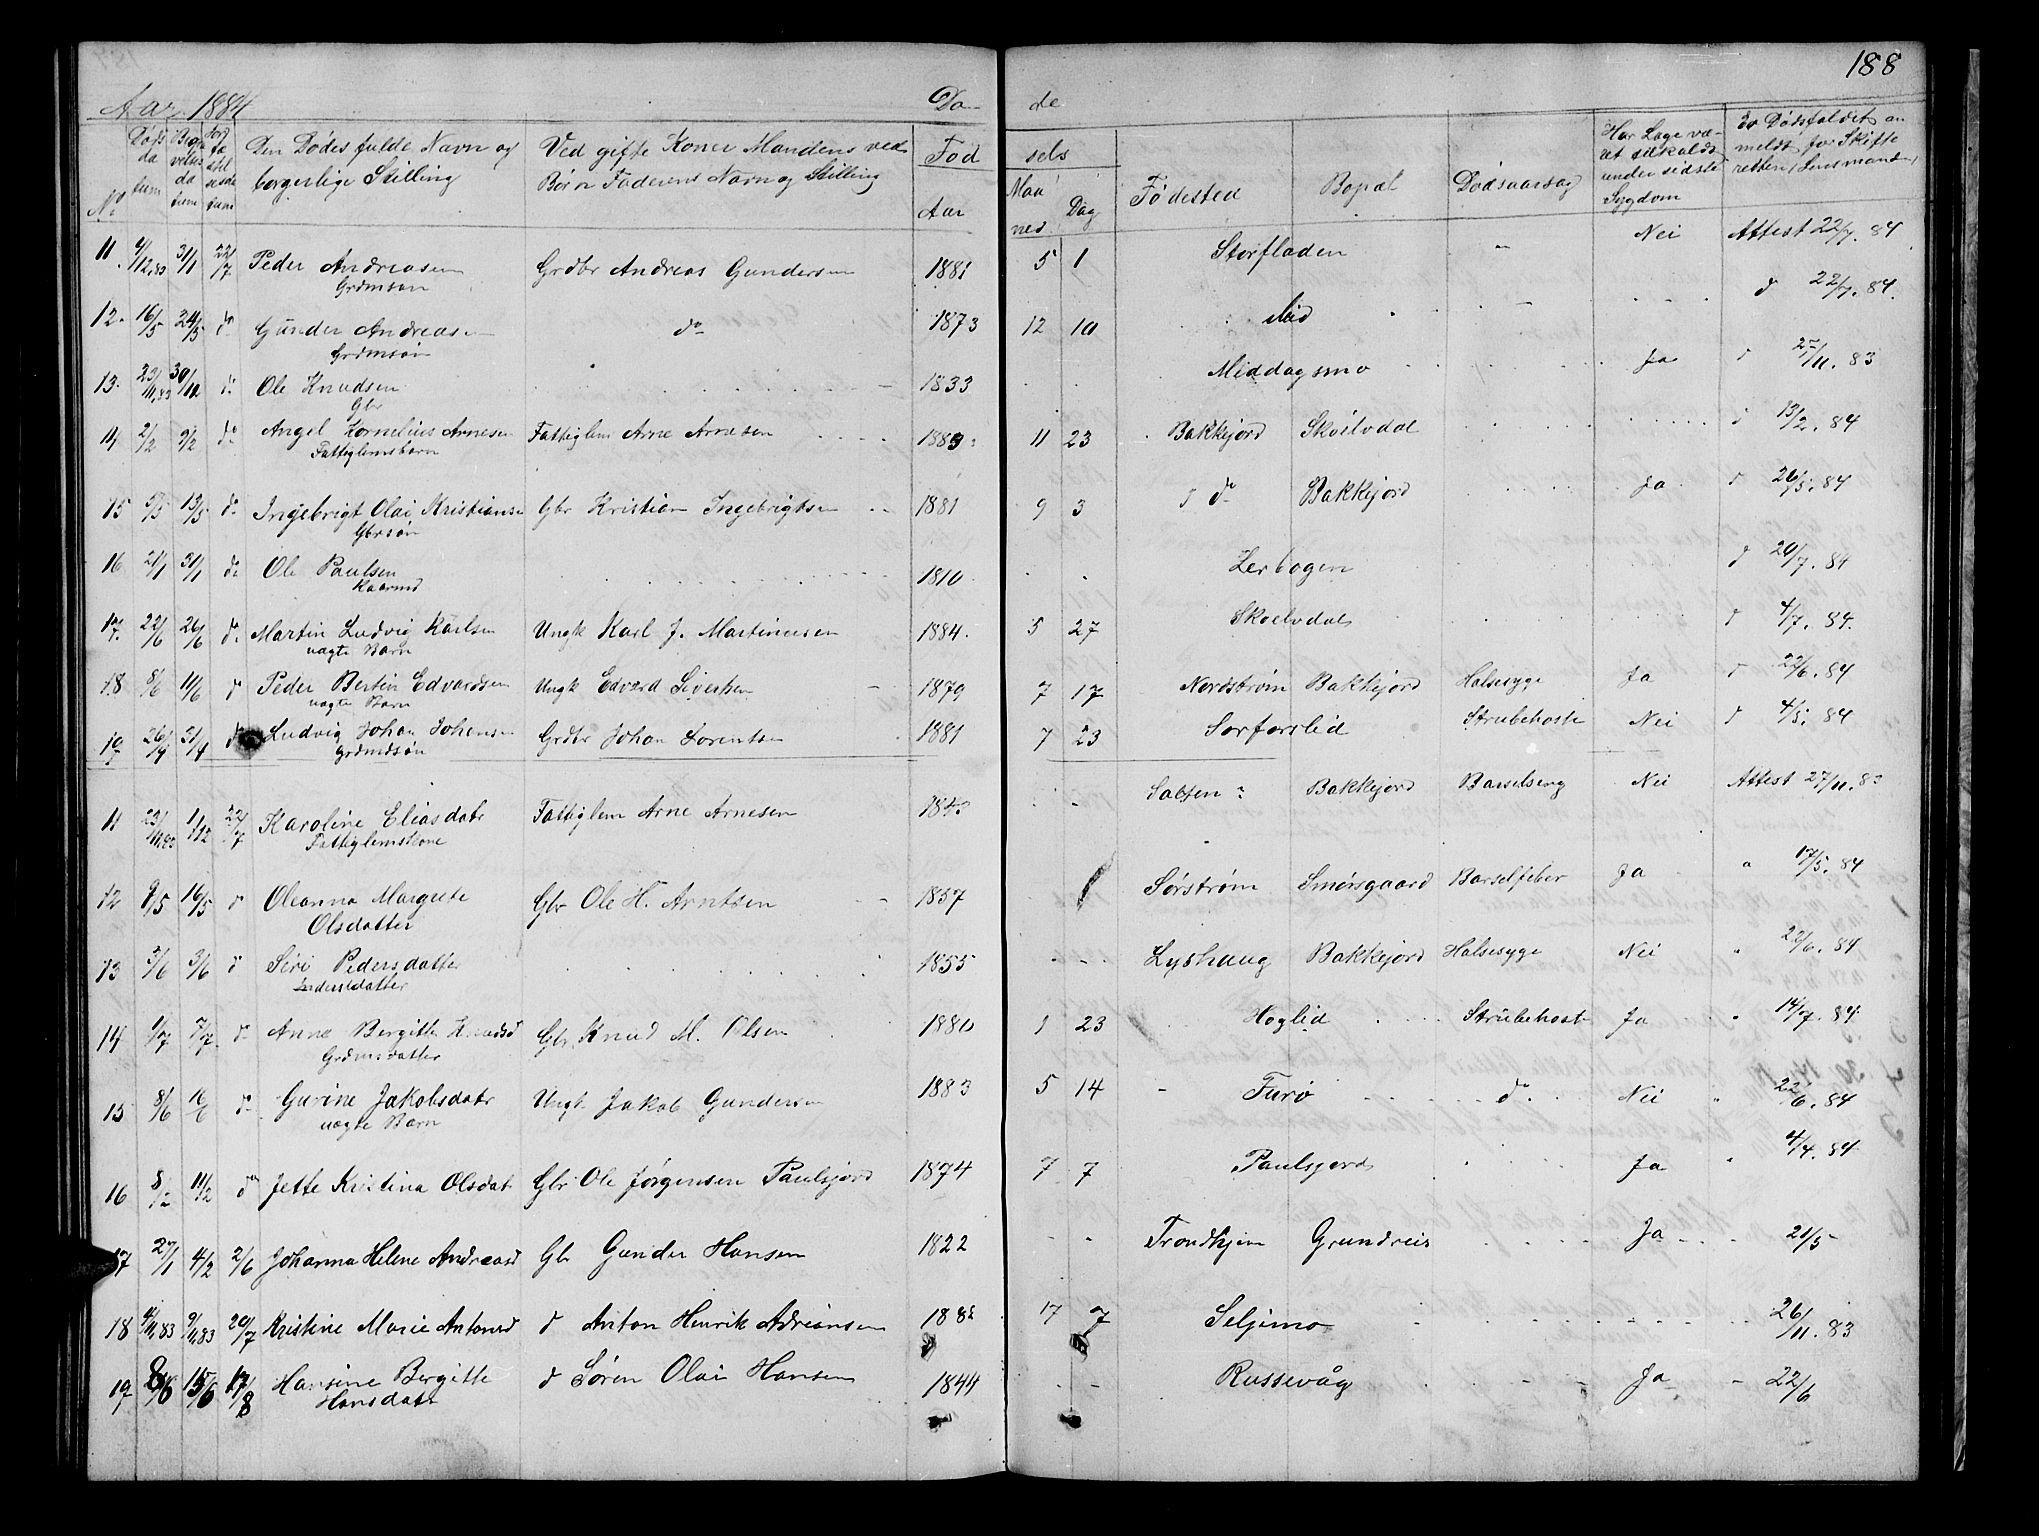 188
Aar 1884 Dø de
No Døds datum Begravelses datum Jordfæstelsesdatum Den Dødes fulde Navn og borgerlige Stilling Ved gifte Koner Mandens ved Børn Faderens Navn og Stilling Fød sels Aar Maaned Dag Fødested Bopæl Dødsaarsag Har Læge været tilkaldt under sidste Sygdom Er Dødsfaldet anmeldt for Skifteretten, Lensmanden
11. 4/12.83 31/1 22/7 Peder Andreasen Grdbr Andreas Gundersen 1881 5 1 Storfladen " Nei Attest 22/7. 84
Grdmsøn
12. 16/5 24/5 do Gunder Andreasen do 1873 12 10 d 22/7. 84.
Grdmsøn
13. 23/11.83 30/12 do Ole Knudsen 1833 Middagsmo Ja d 27/11. 83
Gbr
14 2/2 9/2 do Angel Kornelius Arnesen Fattiglem Arne Arnesen 1883 11 23 Bakkejord Skoelvdal d 13/2. 84
Fattiglemsbarn
15 5/5 13/5 do Ingebrigt Olai Kristiansen Gbr Kristian Ingebrigtsen 1881 9 3 do Bakkejord Ja d 26/5. 84
Gbrsøn
16 21/1 31/1 do Ole Paulsen 1810 Lerbogen d 20/7. 84
Kaarmd
17. 22/6 26/6 do Martin Ludvig Karlsen Ungk Karl J. Martinusen 1884. 5 27 Skoelvdal d 4/7. 84.
uægte Barn
18 8/6 11/6 d Peder Bertin Edvardsen Ungk Edvard Sivertsen 1879 7 17 Nordstrøm Bakkejord Halsesyge Ja d 22/6. 84
uægte Barn
19 26/4 31/4 do Ludvig Johan Johansen Grdbr Johan Lorentsen 1881 7 23 Sørforslid Strubehoste Nei d 4/5. 84
Grdmdsøn
11 23/11.83 1/12 22/7 Karoline Eliasdatr Fattiglem Arne Arnesen 1843 Salten ? Bakkejord Barselseng Nei Attest 27/11. 83
Fattiglemskone
12 9/5 16/5 d Oleanna Margrete Gbr Ole H. Arntsen 1857 Sørstrøm Smørsgaard Barselfeber Ja " 17/5. 84
Olsdatter
13 3/6 d Siri Pedersdatter 1855 Lyshaug Bakkejord Halsesyge Nei " 22/6. 84
Inderstdatter
14 1/7 7/7 do Anne Bergitte Knudsd Gbr Knud M. Olsen 1880 1 23 Høglid Strubehoste Ja " 14/7. 84
Grdmsdatter
15 8/6 do Gurine Jakobsdatr Ungk Jakob Gundersen 1883 5 14 Furø do Nei " 22/6. 84
uægte Barn
16 8/2 11/2 do Jette Kristina Olsdat Gbr Ole Jørgensen Paulsjord 1874 7 7 Paulsjord Ja " 4/4. 84
17 27/1 4/2 2/6 Johanna Helene Andreasd Gbr Gunder Hansen 1822 Trondhjem Grundreis Ja 21/5
18 4/11.83 9/11.83 20/7 Kristine Marie Antonsd d Anton Henrik Adriansen 1882 17 7 Seljemo 26/11. 83
19 8/6 15/6 17/8 Hansine Bergitte d Søren Olai Hansen 1844 Russevåg Ja 22/6
Hansdatr